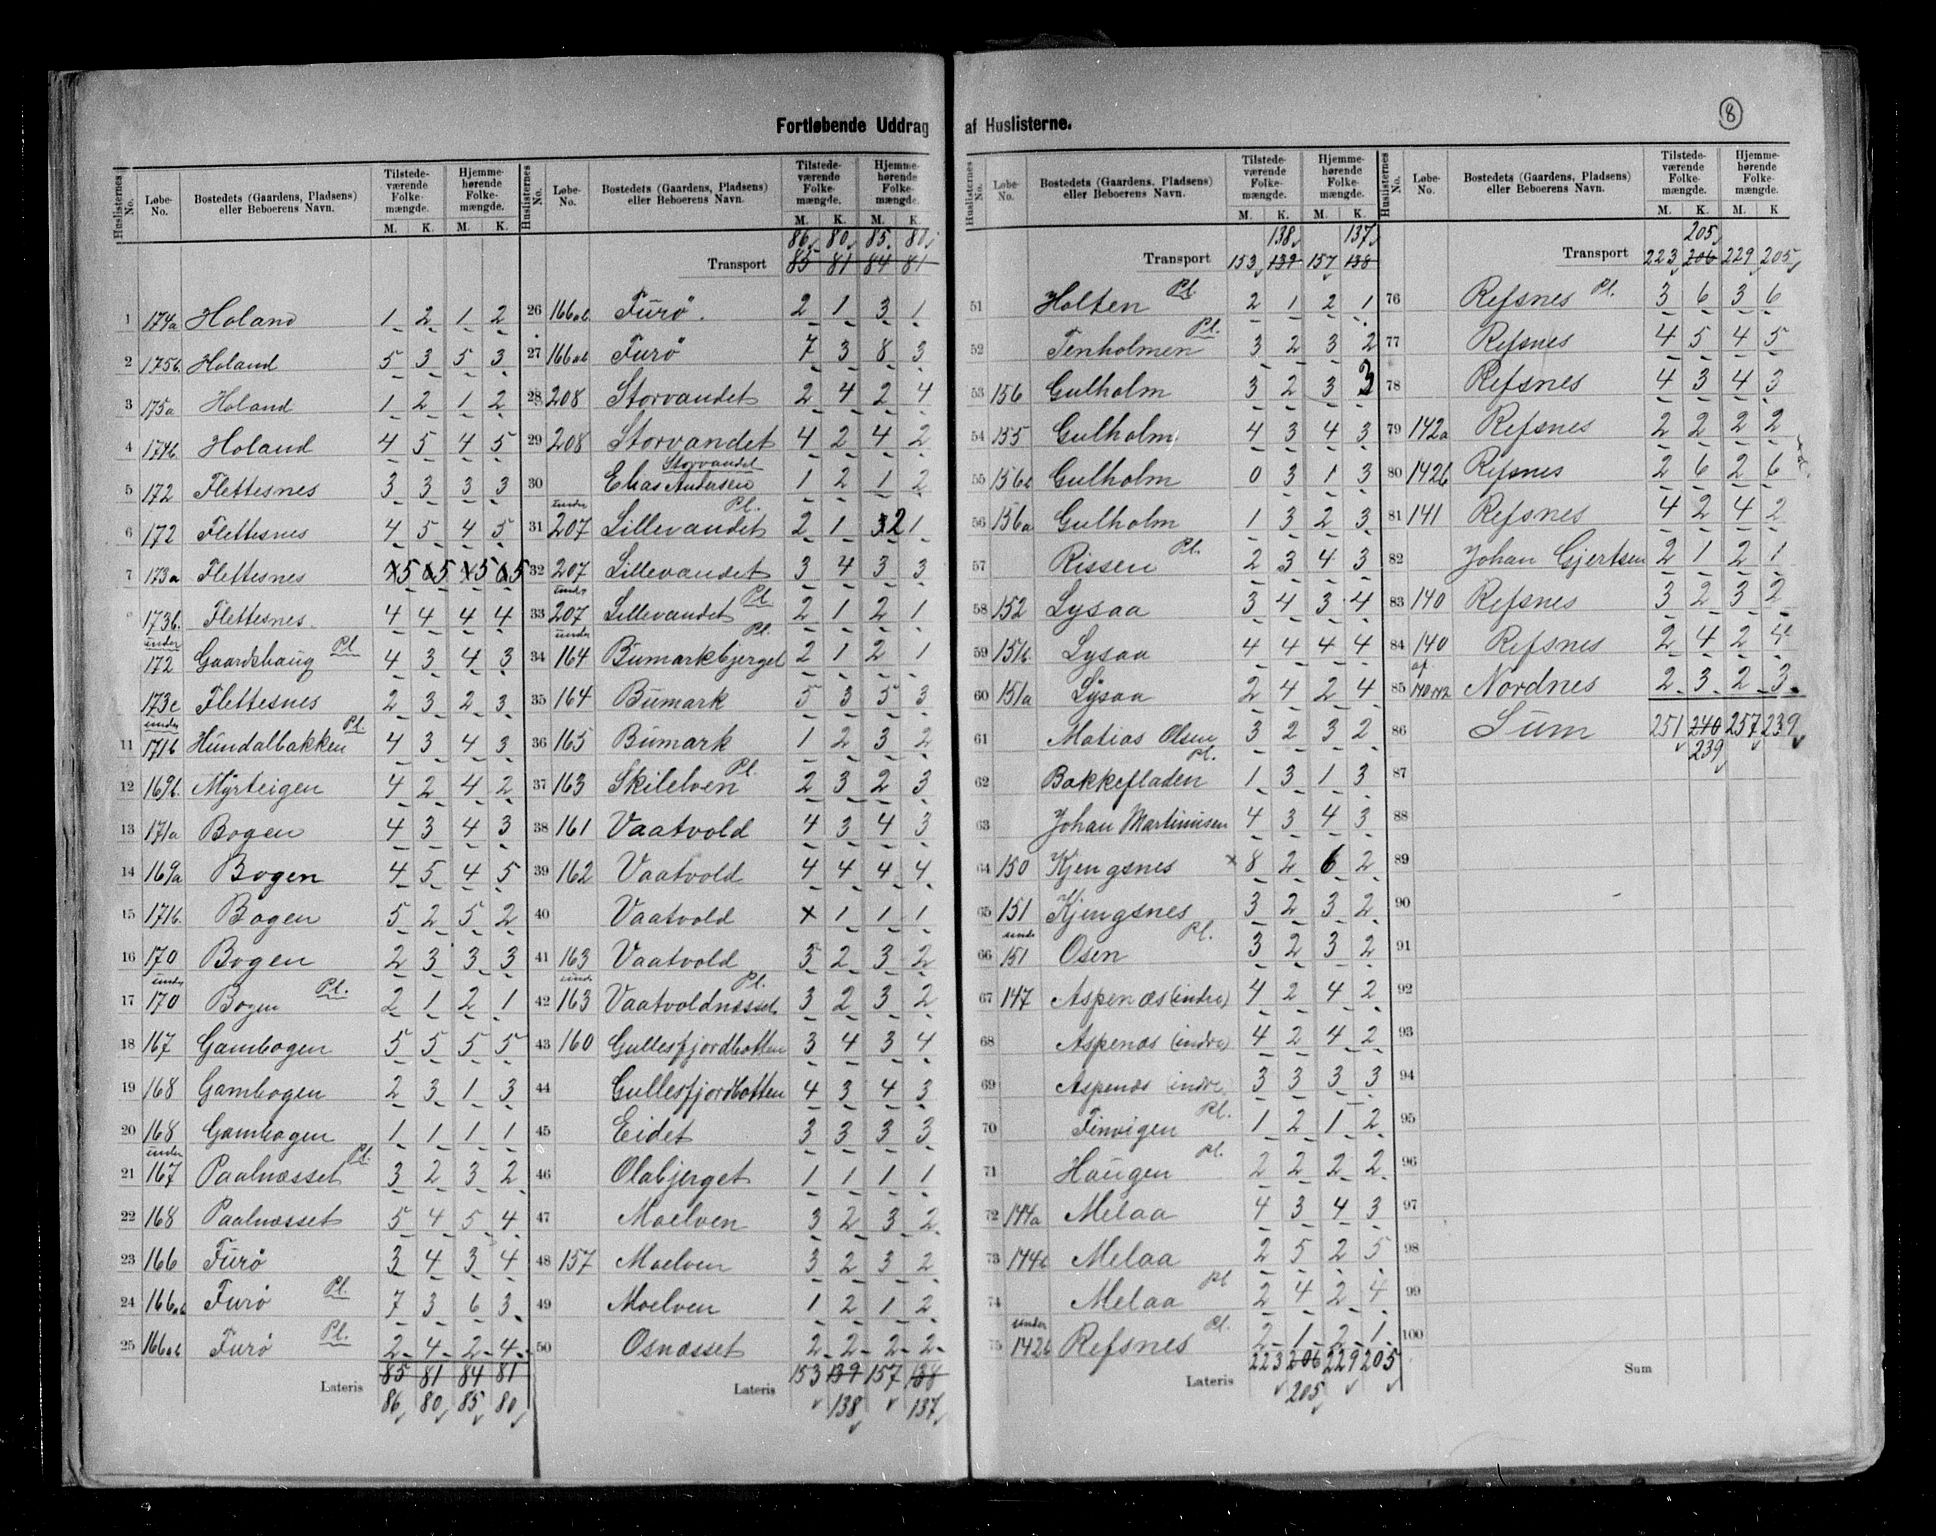 8
Fortløbende Uddrag af Huslisterne.
Huslisternes No. | Løbe-No. | Bostedets (Gaardens, Pladsens) eller Beboerens Navn. | Tilstede-værende Folke-mængde. M. K. | Hjemme-hørende Folke-mængde. M. K.
1 174a Holand 1 2 1 2
2 175b Holand 5 3 5 3
3 175a Holand 1 2 1 2
4 174b Holand 4 5 4 5
5 172 Flettesnes 3 3 3 3
6 172 Flettesnes 4 5 4 5
7 173a Flettesnes 5 5 5 5
173b. Flettesnes. 4 4 4 4
under 172 Gaardshaug Pl 4 3 4 3
173c Flettesnes 2 3 2 3
11 under 171b Hundalbakken Pl 4 3 4 3
12 169b. Myrteigen 4 2 4 2
13 171a Bogen 4 3 4 3
14 169a Bogen 4 5 4 5
15 171b. Bogen 5 2 5 2
16 170 Bogen 2 3 3 3
17 under 170 Bogen Pl. 2 1 2 1
18 167 Gambogen 5 5 5 5
19 168 Gambogen 2 3 1 3
20 168 Gambogen 1 1 1 1
21 under 167 Paalnæsset Pl. 3 2 3 2
22 168 Paalnæsset 5 4 5 4
23 166 Furø 3 4 3 4
24 166ab Furø Pl. 7 3 6 3
25 166ab Furø Pl. 2 4 2 4
Lateris 85 81 84 81
86 80 85 80
Huslisternes No. | Løbe-No. | Bostedets (Gaardens, Pladsens) eller Beboerens Navn. | Tilstede-værende Folke-mængde. M. K. | Hjemme-hørende Folke-mængde. M. K.
86 80 85 80
Transport 85 81 84 81
26 166ab. Furø. 2 1 3 1
27 166ab Furø 7 3 8 3
28 208 Storvandet 2 4 2 4
29 208 Storvandet 4 2 4 2
30 Storvandet Elias Andersen 1 2 1 2
31 under 207 Lillevandet Pl. 2 1 2 1
32 207 Lillevandet 3 4 3 3
33 under 207 Lillevandet Pl 2 1 2 1
34 under 164 Bumarkbjerget Pl. 2 1 2 1
35 164 Bumark 5 3 5 3
36 165 Bumark 1 2 3 2
37 163 Skilelven Pl. 2 3 2 3
38 161 Vaatvold 4 3 4 3
39 162 Vaatvold 4 4 4 4
40 Vaatvold x 1 1 1
41 163 Vaatvold 3 2 3 2
42 under 163 Vaatvoldnæsset Pl. 3 2 3 2
43 160 Gullesfjordbotten 3 4 3 4
44 Gullesfjordbotten 4 3 4 3
45 Eidet 3 3 3 3
46 Olabjerget 1 1 1 1
47 Moelven 3 2 3 2
48 157 Moelven 3 2 3 2
49 Moelven 1 2 1 2
50 Osnæsset 2 2 2 2
Lateris 153 139 157 138
138 137
Huslisternes No. | Løbe-No. | Bostedets (Gaardens, Pladsens) eller Beboerens Navn. | Tilstede-værende Folke-mængde. M. K. | Hjemme-hørende Folke-mængde. M. K.
138 137
Transport 153 139 157 138
51 Holten Pl 2 1 2 1
52 Tenholmen Pl. 3 2 3 2
53 156 Gulholm 3 2 3 3
54 155 Gulholm 4 3 4 3
55 156b Gulholm 0 3 1 3
56 156a Gulholm 1 3 2 3
57 Rissen Pl. 2 3 4 3
58 152 Lysaa 3 4 3 4
59 151b. Lysaa 4 4 4 4
60 151a Lysaa 2 4 2 4
61 Matias Olsen 3 2 3 2
62 Bakkefladen Pl. 1 3 1 3
63 Johan Martinusen 4 3 4 3
64 150 Kjengsnes x 8 2 6 2
65 151 Kjengsnes 3 2 3 2
66 under 151 Osen Pl. 3 2 3 2
67 147 Aspenæs (indre) 4 2 4 2
68 Aspenæs (indre) 4 2 4 2
69 Aspenæs indre 3 3 3 3
70 Finvigen Pl. 1 2 1 2
71 Haugen Pl. 2 2 2 2
72 144a Melaa 4 3 4 3
73 144b Melaa 2 5 2 5
74 Melaa Pl 2 4 2 4
75 under 142b Refsnes Pl. 2 1 2 1
Lateris 223 206 229 205
205
Huslisternes No. | Løbe-No. | Bostedets (Gaardens, Pladsens) eller Beboerens Navn. | Tilstede-værende Folke-mængde. M. K. | Hjemme-hørende Folke-mængde. M. K
205
Transport 223 206 229 205
76 Refsnes Pl. 3 6 3 6
77 Refsnes 4 5 4 5
78 Refsnes 4 3 4 3
79 142a Refsnes 2 2 2 2
80 142b Refsnes 2 6 2 6
81 141 Refsnes 4 2 4 2
82 Johan Gjertsen 2 1 2 1
83 140 Refsnes 3 2 3 2
84 140 Refsnes 2 4 2 4
85 af Nordnes 2 3 2 3
86 Sum 251 240 257 239
239
87
88
89
90
91
92
93
94
95
96
97
98
99
100
Sum